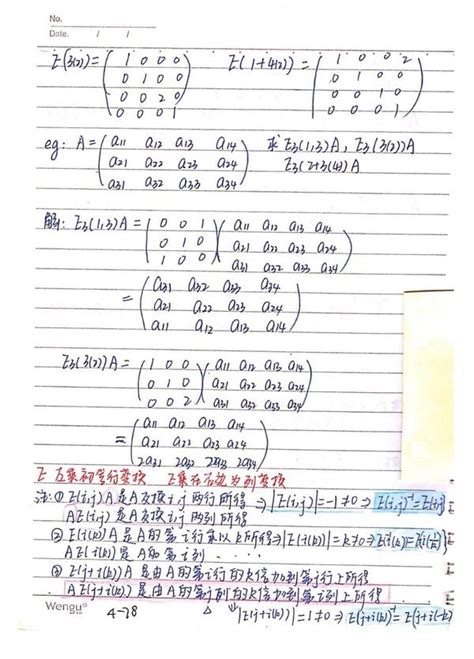 No.
Date. / /
E(3(2)) = ( 1 0 0 0 E(1+4(2)) = ( 1 0 0 2
0 1 0 0 0 1 0 0
0 0 2 0 0 0 1 0
0 0 0 1 ) 0 0 0 1 )
eg: A = ( a11 a12 a13 a14 ) 求 E3(1,3)A, E3(3(2))A
a21 a22 a23 a24 E3(2+3(4))A
a31 a32 a33 a34
解: E3(1,3)A = ( 0 0 1 ) ( a11 a12 a13 a14
0 1 0 a21 a22 a23 a24
1 0 0 a31 a32 a33 a34 )
= ( a31 a32 a33 a34
a21 a22 a23 a24
a11 a12 a13 a14 )
E3(3(2))A = ( 1 0 0 ) ( a11 a12 a13 a14
0 1 0 a21 a22 a23 a24
0 0 2 a31 a32 a33 a34 )
= ( a11 a12 a13 a14
a21 a22 a23 a24
2a31 2a32 2a33 2a34 )
E 左乘初等行变换 E乘在右边为列变换
注: ① E(i,j)A 是A交换i,j两行所得 ⇒ |E(i,j)| = -1 ≠ 0 ⇒ E(i,j)⁻¹ = E(i,j)
AE(i,j) 是A交换i,j两列所得
② E(i(k))A 是A的第i行乘以k所得 ⇒ |E(i(k))| = k ≠ 0 ⇒ E(i(k))⁻¹ = E(i(1/k))
AE(i(k)) 是A的第i列 . . . . .
③ E(j+i(k))A 是由A的第i行的k倍加到第j行上所得
AE(j+i(k)) 是由A的第j列的k倍加到第i列上所得
Wengu 4-78 |E(j+i(k))| = 1 ≠ 0 ⇒ E(j+i(k))⁻¹ = E(j+i(-k))